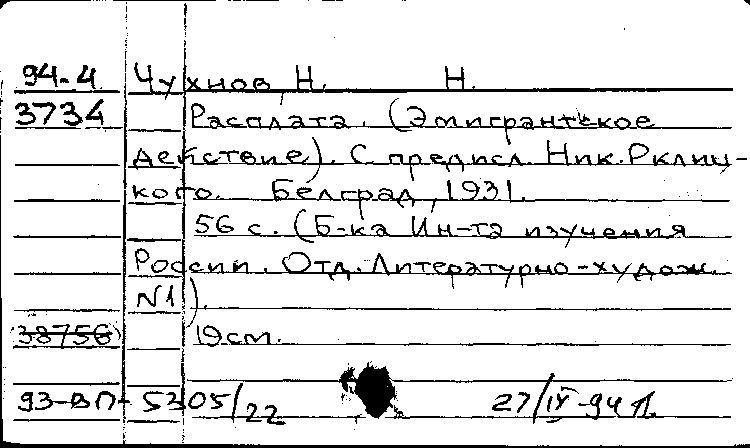 94-4 Чухнов, Н. Н.
3734 Расплата. (Эмигрантское
действие). С предисл. Ник. Рклиц-
кого. Белград, 1931.
56 с. (Б-ка Ин-та изучения
России. Отд. Литературно-худож.
N1).
38756 19 см.
93-ВП-5305/22 27/IX-94 л.